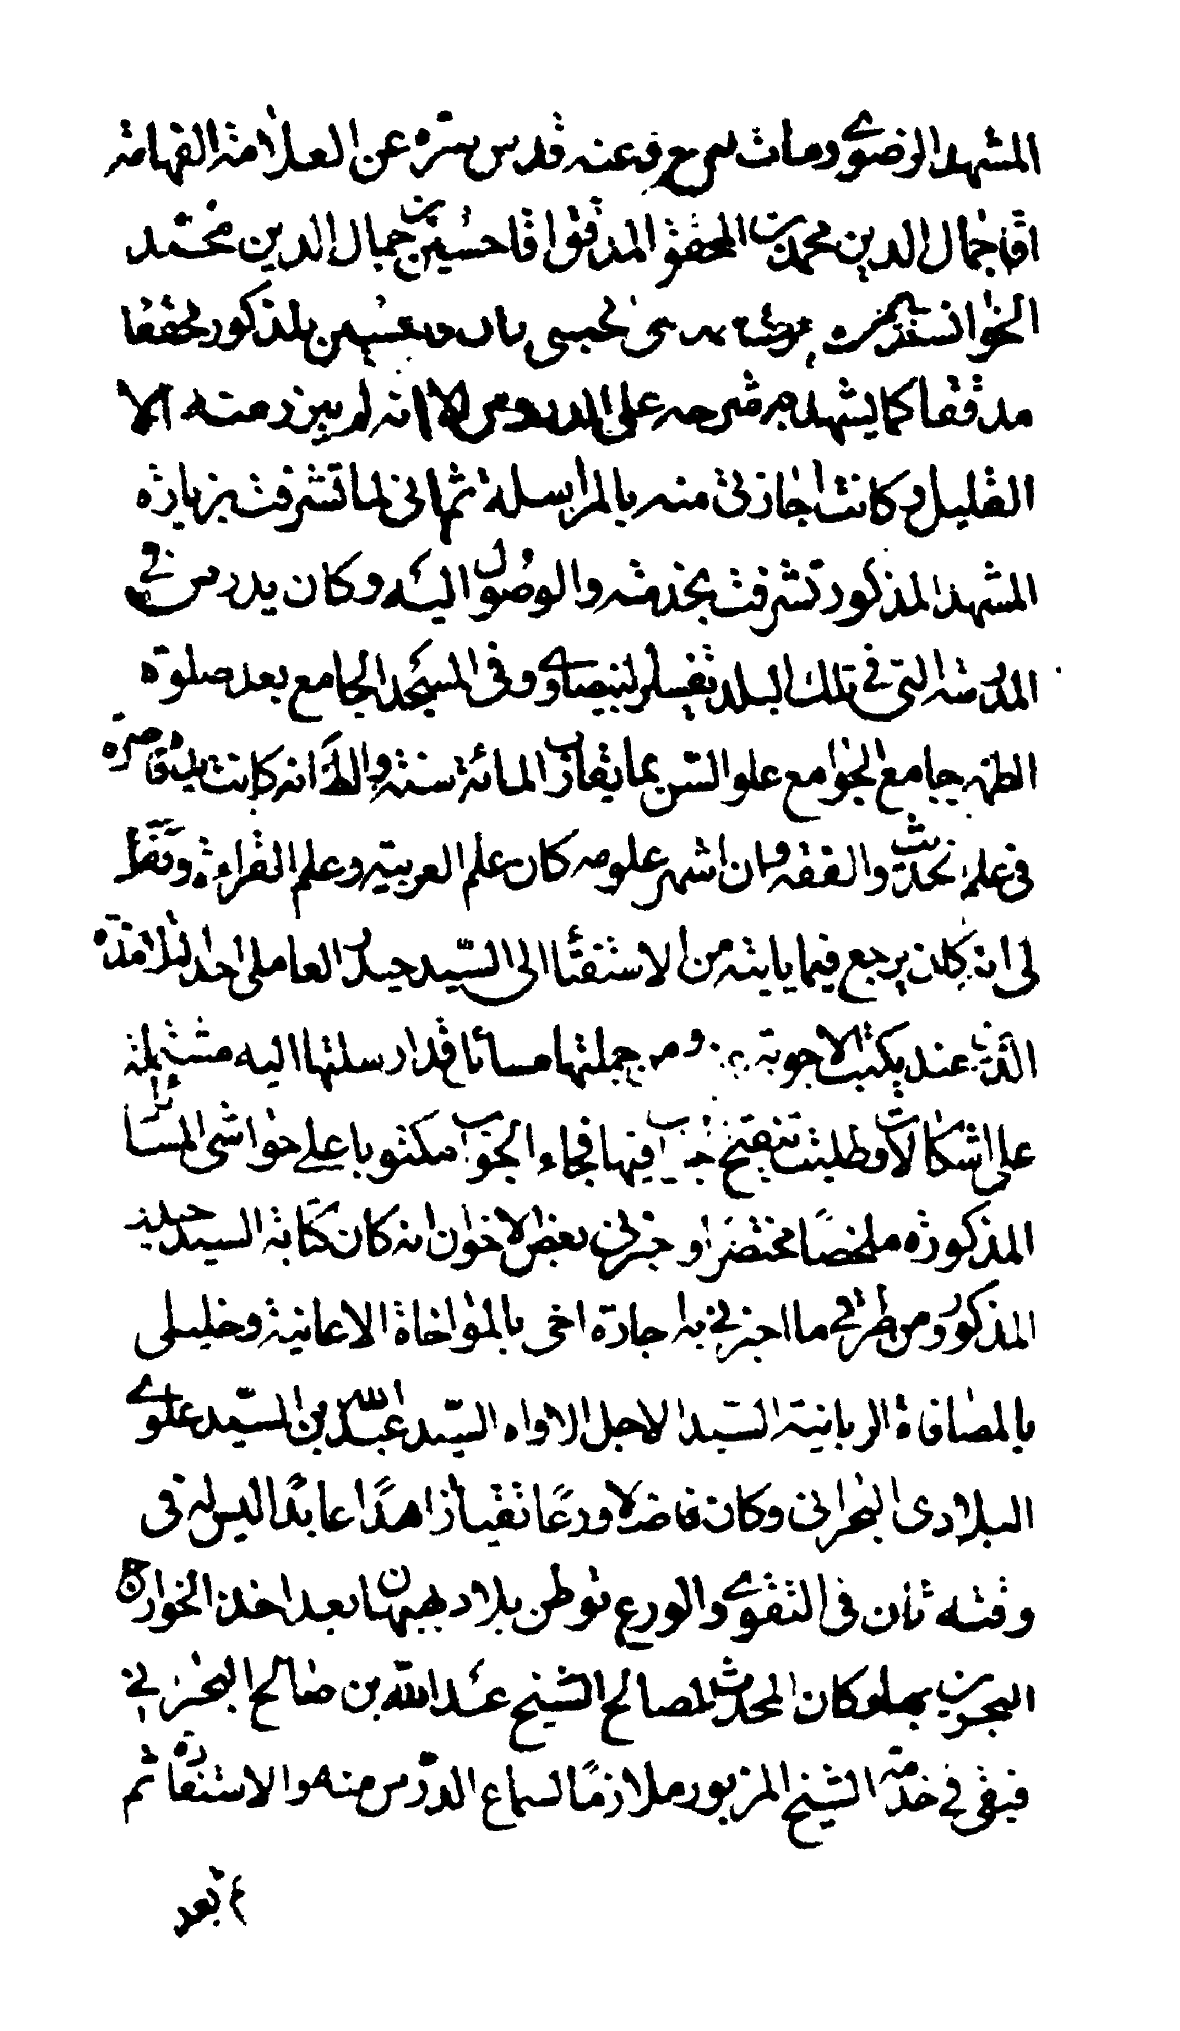 المشهد الرضوي ومات رضي عنه قدس سره عن العلامة الفهامة
اقا جمال الدين محمد بن المحقق المدقق اقا حسين بن جمال الدين محمد
الخوانساري المذكور محققا
مدققا كما يشهد به شرحه على الدروس الا انه لم يبرز منه الا
القليل وكانت اجازتي منه بالمراسلة ثم اني لما تشرفت بزيارة
المشهد المذكور تشرفت بخدمته والوصول اليه وكان يدرس في
المدرسة التي في تلك البلد تفسير البيضاوي وفي المسجد الجامع بعد صلوة
الظهر جامع الجوامع علو السن بما يقارب المائة سنة والظ انه كانت يده قاصرة
في علم الحديث والفقه وان اشهر علومه كان علم العربية وعلم القراءة ونقل
لي انه كان يرجع فيما ياتيه من الاستفتا الى السيد حيدر العاملي احد تلامذة
الذي عنده يكتب الاجوبة ومن جملتها مسائل قد ارسلتها اليه مشتملة
على اشكالات وطلبت تنقيح فيها فجاء الجواب مكتوبا على حواشي المسائل
المذكورة ملخصا مختصرا وخبرني بعض الاخوان انه كان كتابة السيد حيدر
المذكور ومن طرقي ما اخبرني به اجازة اخي بالمواخاة الايمانية وخليلي
بالمصافاة الربانية السيد الاجل الاواه السيد عبد الله بن السيد علوي
البلادي البحراني وكان فاضلا ورعا تقيا زاهدا عابدا ليس له في
وقته ثان في التقوى والورع توطن بلاد بهبهان بعد اخذ الخوارج
البحرين وكان المحدث الصالح الشيخ عبد الله بن صالح البحراني
فبقي في خدمة الشيخ المزبور ملازما لسماع الدرس منه والاستفادة ثم
بعد